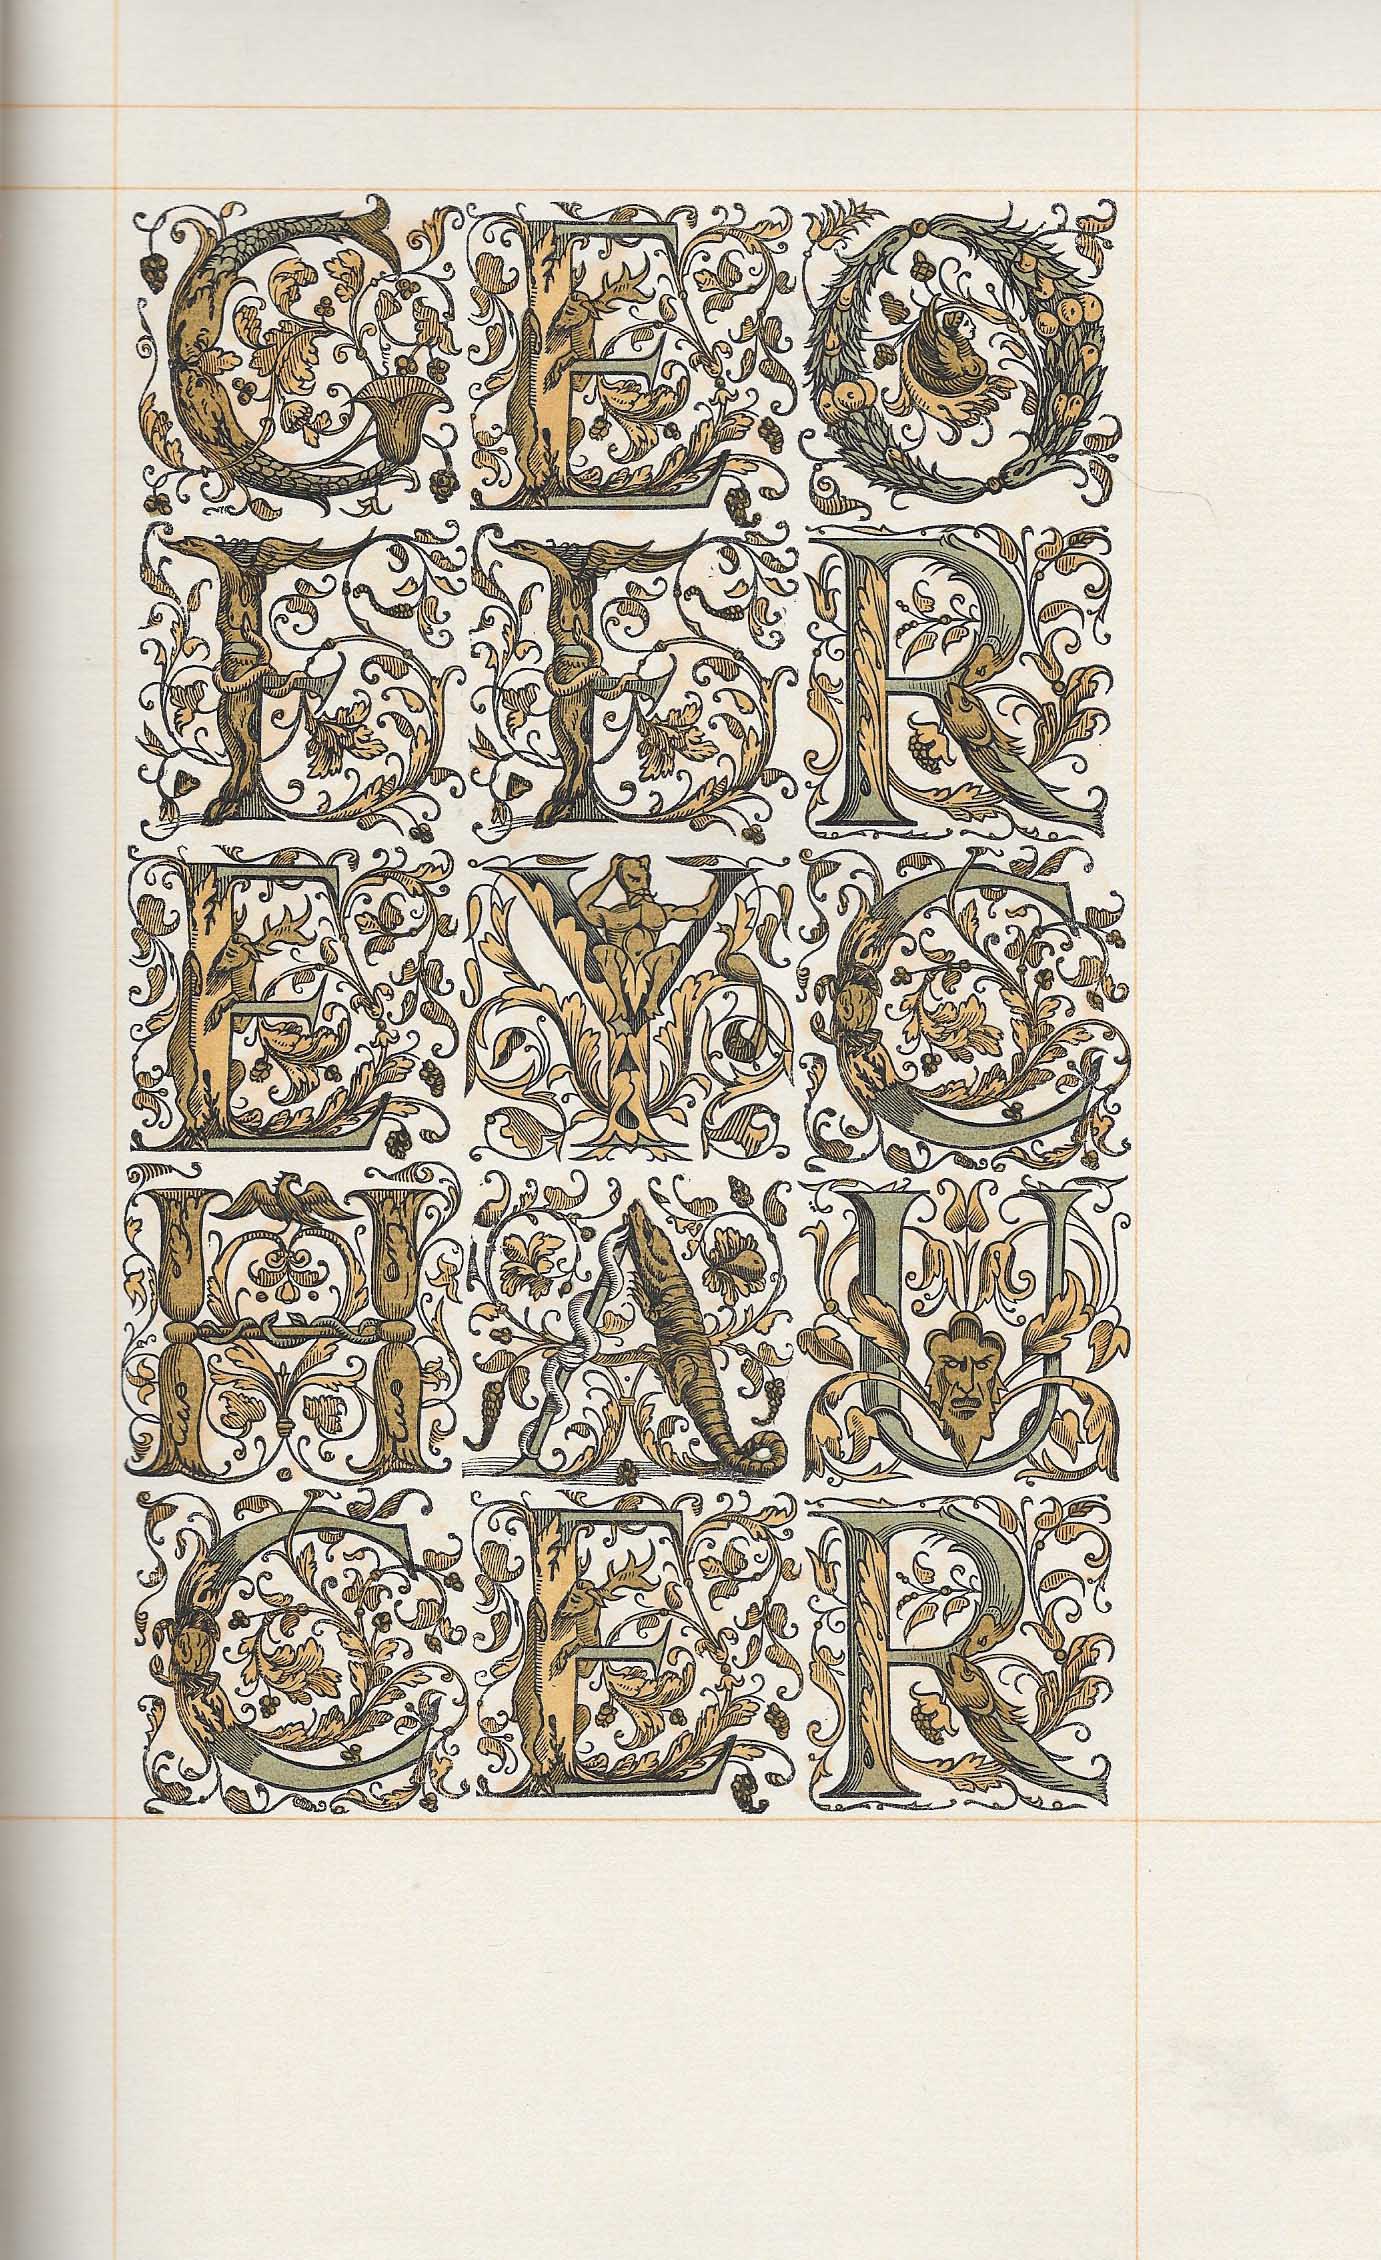 GEO
FFR
EYC
HAU
CER